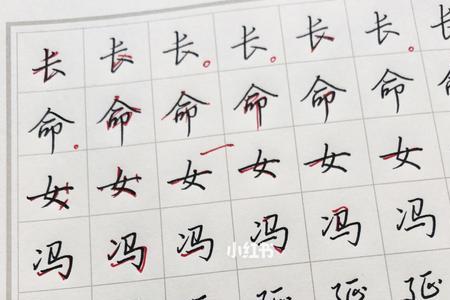 长 长 长 长 长 长 长
命 命 命 命 命 命
女 女 女 女 女 女
冯 冯 冯 冯 冯 冯
小红书